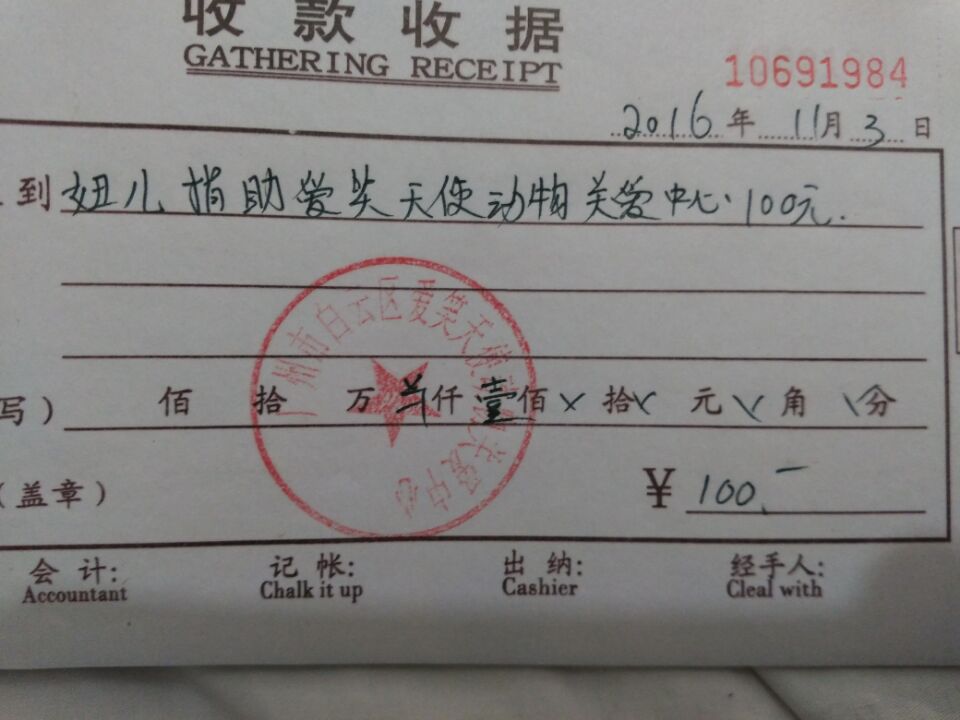 收款收据
GATHERING RECEIPT
10691984
2016年11月3日
到 妞儿捐助爱笑天使动物关爱中心.100元.
广州市白云区爱笑天使动物关爱中心
写） 佰 拾 万 仟 壹佰 × 拾 × 元 × 角 \ 分
（盖章） ¥ 100.—
会 计: 记 帐: 出 纳: 经手人:
Accountant Chalk it up Cashier Cleal with